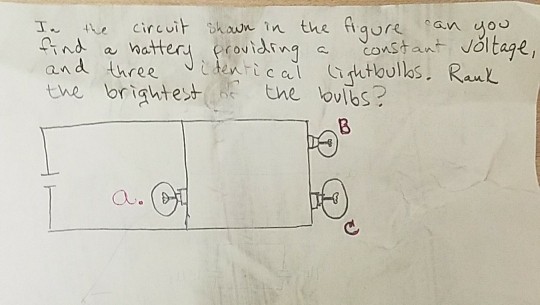 In the circuit shown in the figure can you
find a battery providing a constant voltage,
and three identical lightbulbs. Rank
the brightest of the bulbs?
B
a.
C